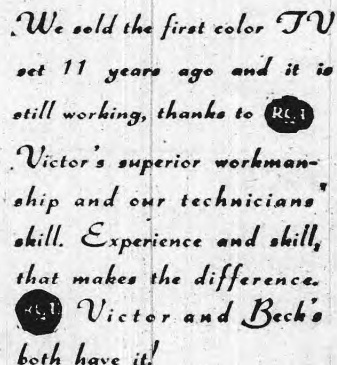 We sold the first color TV
set 11 years ago and it is
still working, thanks to RCA
Victor's superior workman-
ship and our technicians'
skill. Experience and skill,
that makes the difference.
RCA Victor and Beck's
both have it!